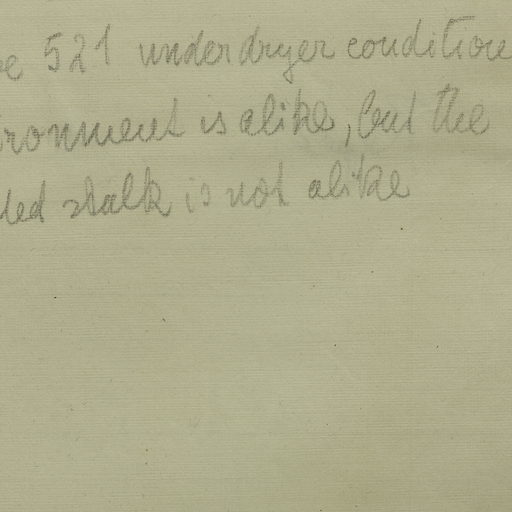 e 521 under dryer condition
ronment is alike, but the
led stalk is not alike